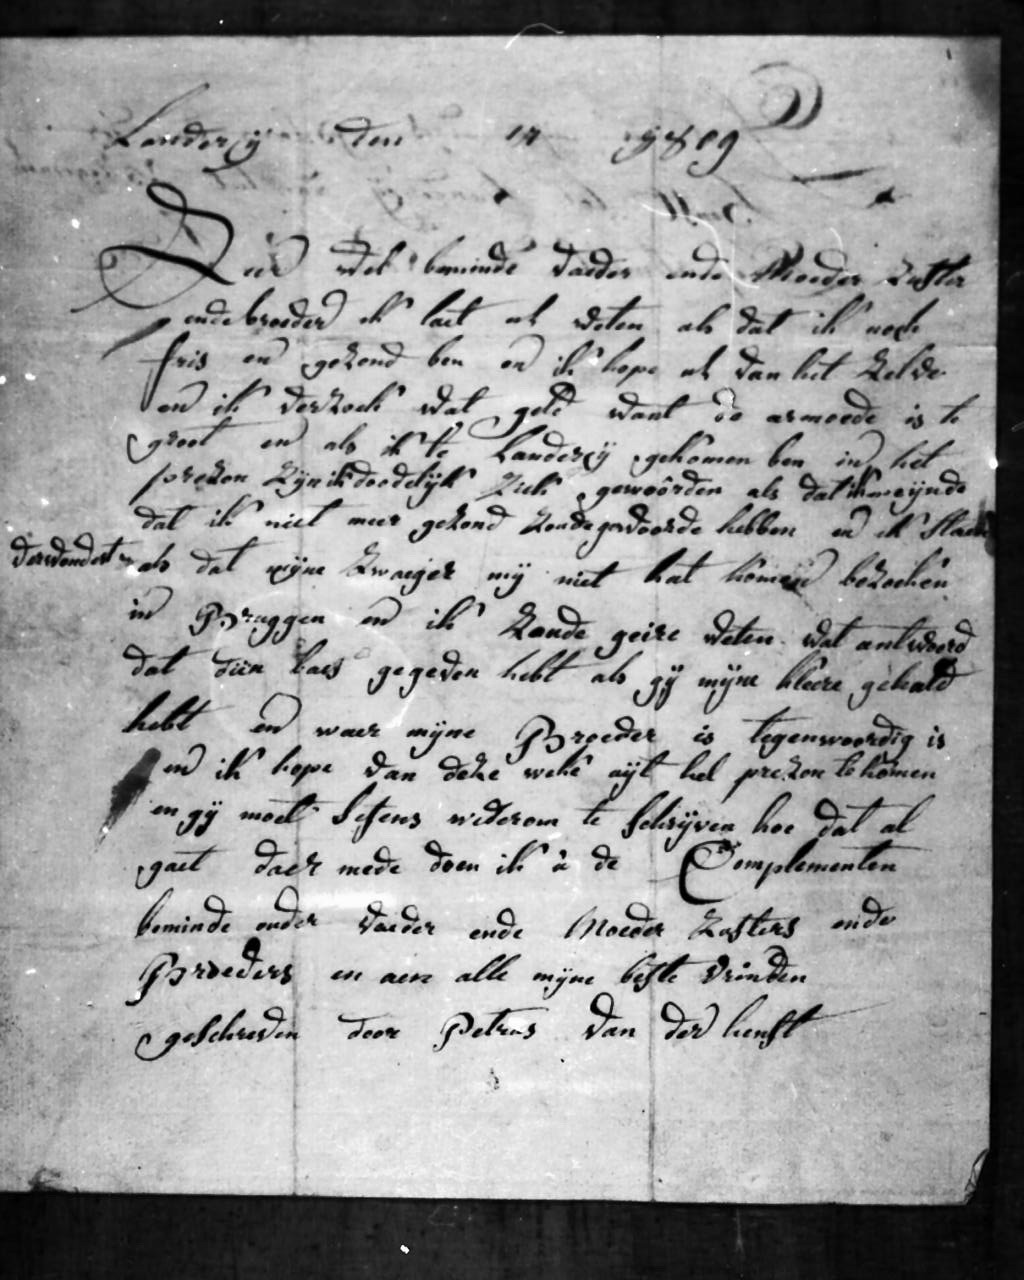 Landercy den 14 1809
Zeer wel beminde vaeder ende Moeder Zuster
ende broeder ik laet ul weten als dat ik noch
fris en gezond ben en ik hope ul van het zelve
en ik verzoek wat geld want de armoede is te
groot en als ik te Landercy gekomen ben in het
prezon zyn ik doodelyk ziek gewoorden als dat ik meynde
dat ik niet meer gezond zoude gewoorde hebben en ik staen
verwondert als dat myne zwaeger my niet hat komen bezoeken
in Bruggen en ik zoude geire weten wat antwoord
dat dien baes gegeven hebt als gy myne kleere gehald
hebt en waer myne Broeder is tegenwoordig is
en ik hope van deze weke uyt het prezon te komen
en gy moet sefens wederom te schryven hoe dat al
gaet daer mede doen ik u de Complementen
beminde ouder vaeder ende Moeder Zusters ende
Broeders en aen alle myne beste vrinden
geschreven door Petrus van der henst